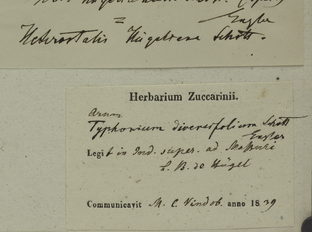 =
Engler
Heterostalis Hügeliana Schott.
Herbarium Zuccarinii.
Arum
Typhonium diversifolium Schott
Engler
Legit in Ind. super. ad Massuri
L. B. de Hügel
Communicavit M. C. Vindob. anno 1839